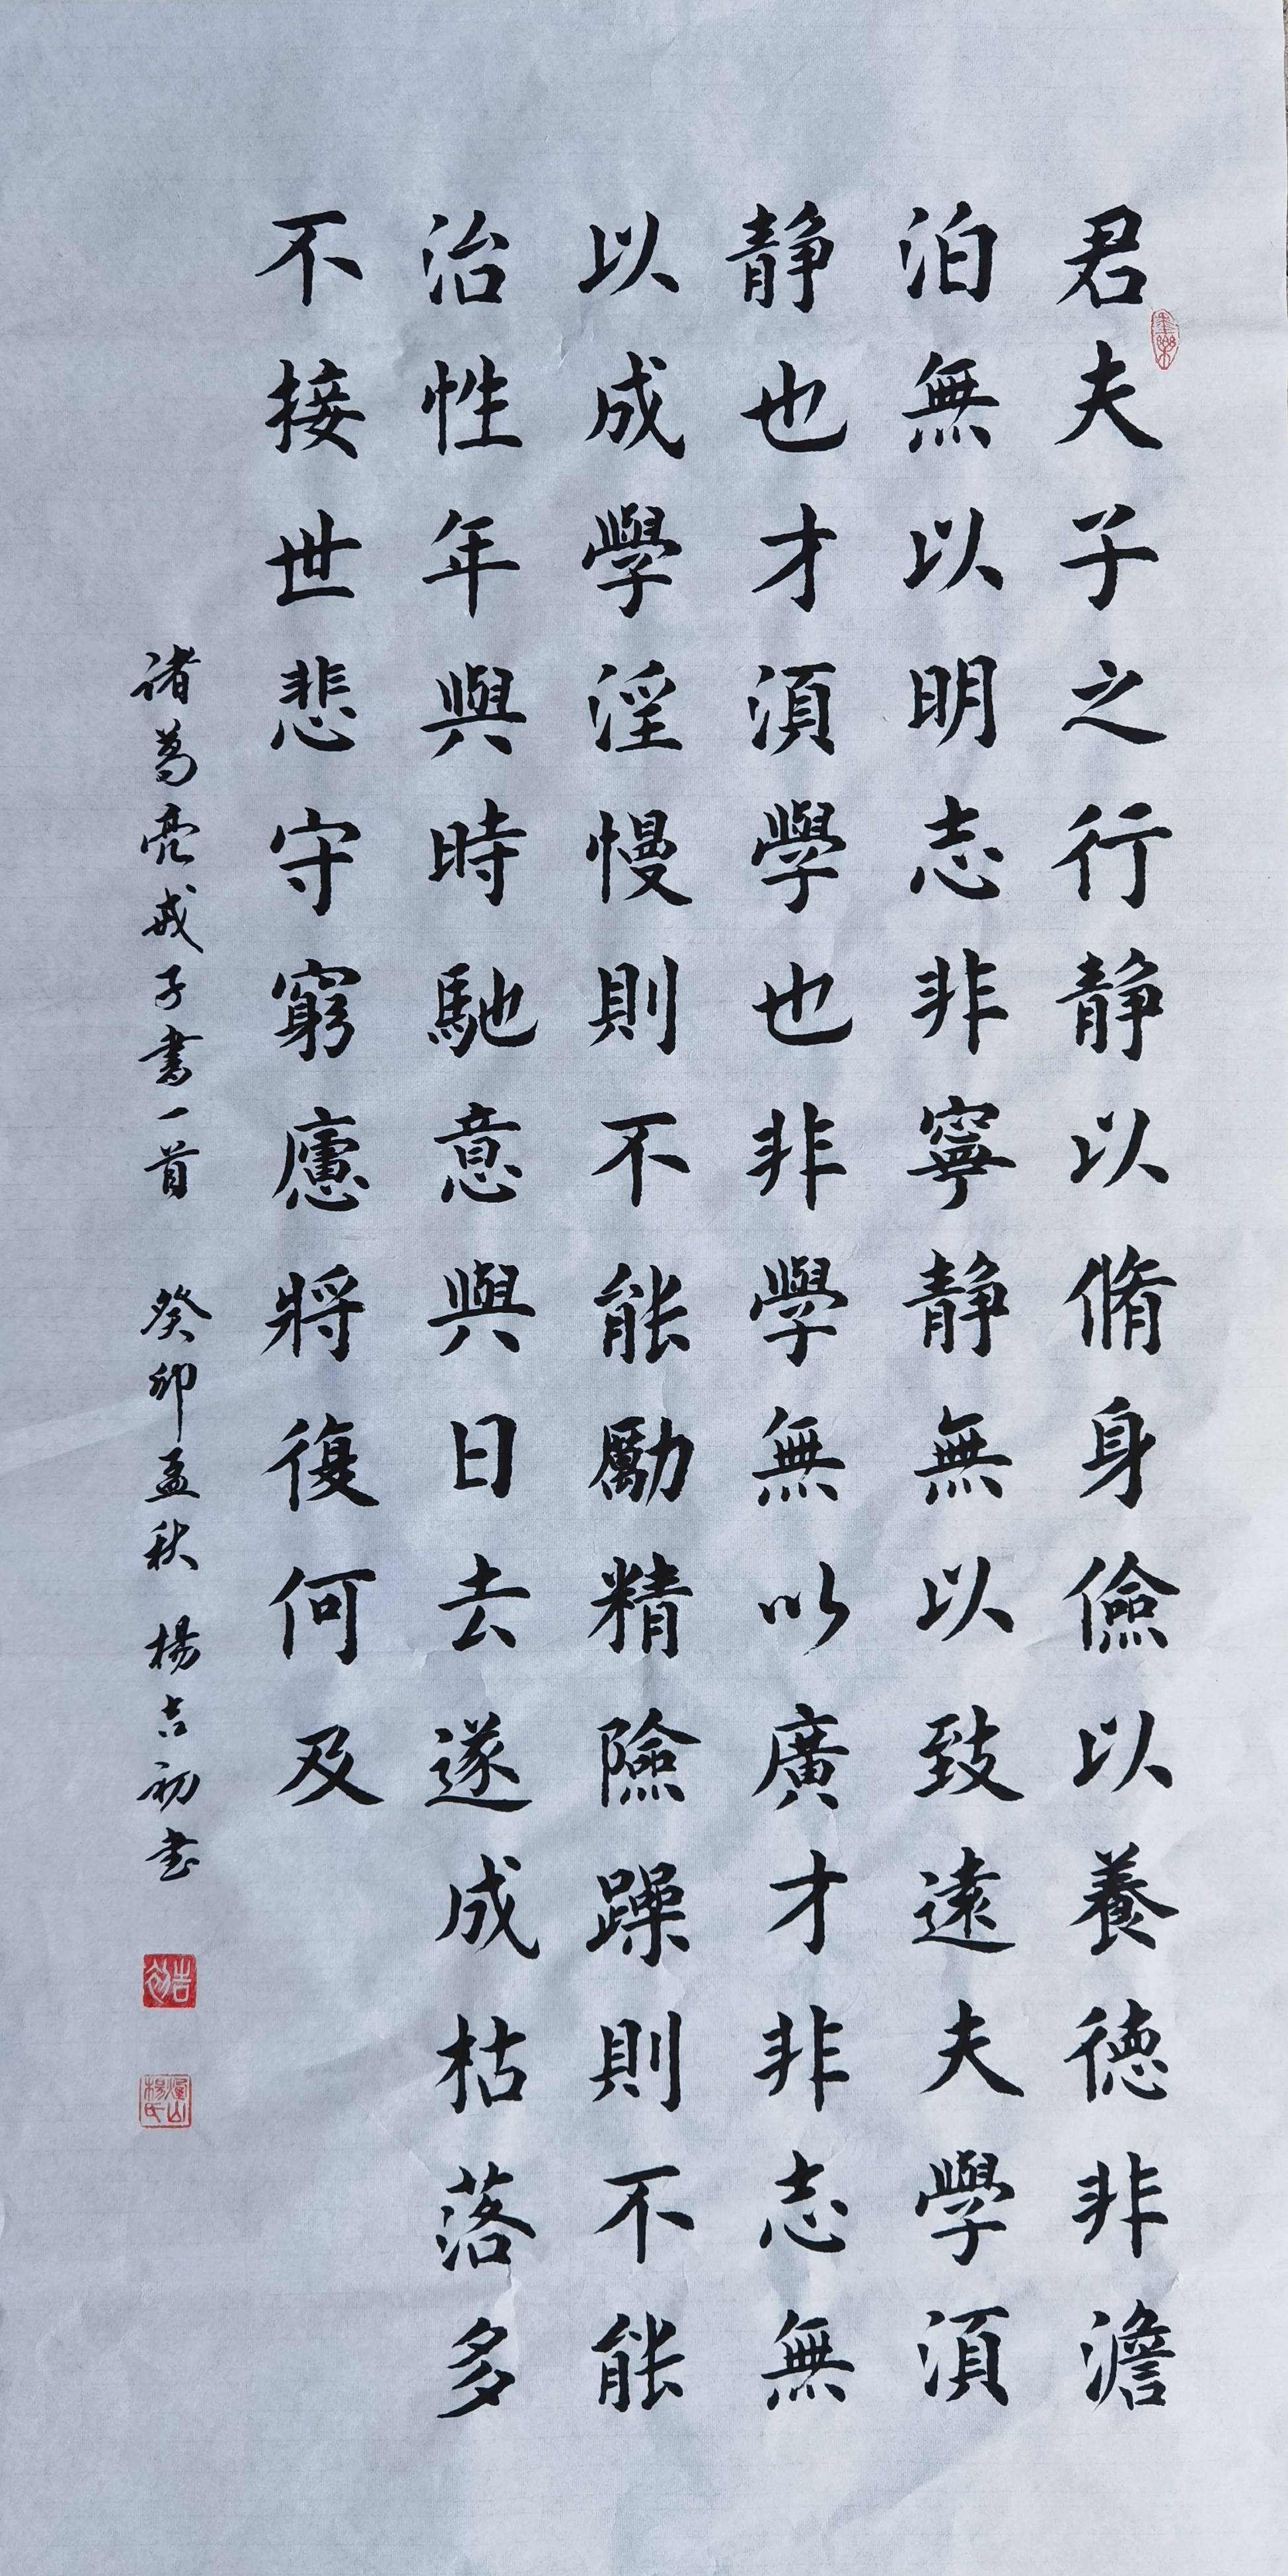 君夫子之行静以脩身儉以養德非澹
泊無以明志非寧静無以致遠夫學須
静也才須學也非學無以廣才非志無
以成學淫慢則不能勵精險躁則不能
治性年與時馳意與日去遂成枯落多
不接世悲守窮廬將復何及
诸葛亮戒子書一首 癸卯孟秋 楊吉初书
吉初